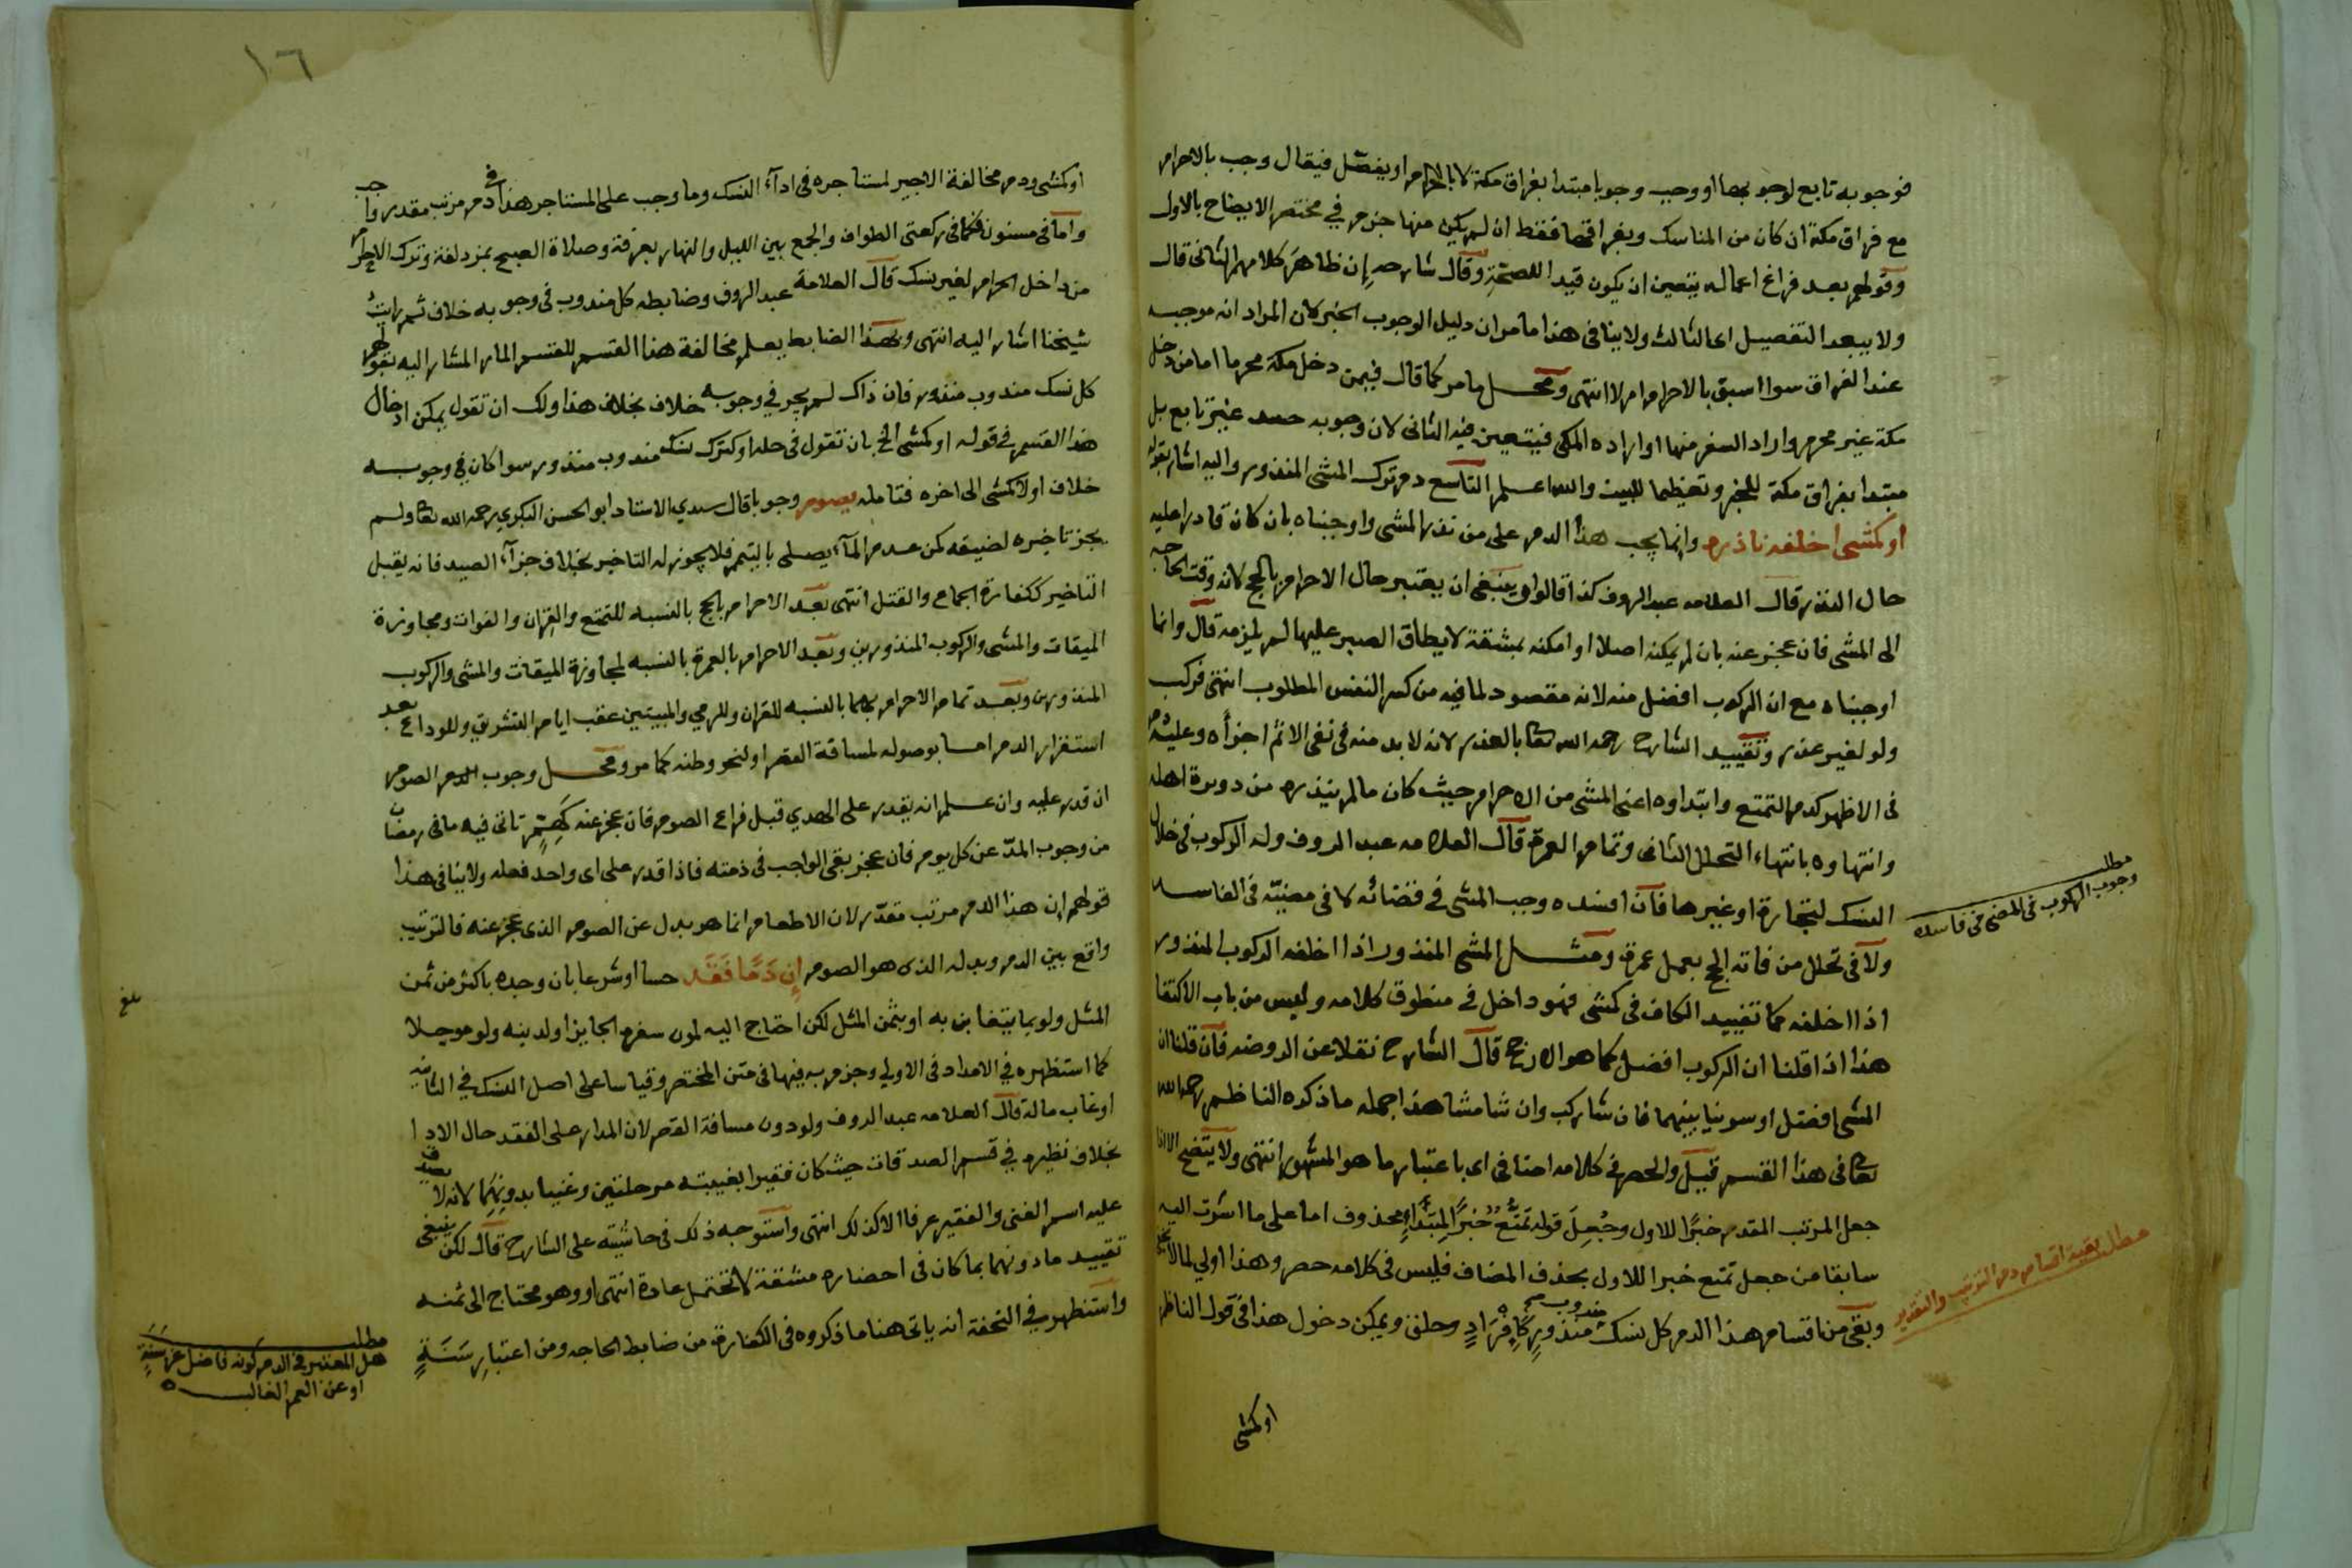 فوجوبه تابع لوجوبها او وجب وجوبا مبتدا بفراق مكة لا بالاحرام او يفصّل فيقال وجب بالاحرام
مع فراق مكة ان كان من المناسك وبفراقها فقط ان لم يكن منها جزم في مختصر الايضاح بالاول
وقولهم بعد فراغ اعماله يتعين ان يكون قيدا للصحة وقال شارحه إن ظاهر كلامهم الثاني قال
ولا يبعد التفصيل اى الثالث ولا ينافى هذا ما مر ان دليل الوجوب الخبر لان المراد انه موجبه
عند الفراق سوا سبق بالاحرام ام لا انتهى ومحل ما مر كما قال فيمن دخل مكة محرما اما من دخل
مكة غير محرم واراد السفر منها او اراده المكى فيتعين فيه الثانى لان وجوبه غير تابع بل
مبتدا بفراق مكة للخبر وتعظيما للبيت والله اعلم التاسع دم ترك المشى المنذور واليه اشار بقوله
او كمشى اخلفه ناذره وانما يجب هذا الدم على من نذر المشى واوجبناه بان كان قادرا عليه
حال النذر قال العلامه عبد الروف كذا قالوا وينبغى ان يعتبر حال الاحرام بالحج لانه وقت الحاجه
الى المشى فان عجز عنه بان لم يمكنه اصلا او امكنه بمشقة لا يطاق الصبر عليها لم يلزمه قال وانما
اوجبناه مع ان الركوب افضل منه لانه مقصود لما فيه من كسر النفس المطلوب انتهى فركب
ولو لغير عذر وتقييد الشارح رحمه الله تعا بالعذر لانه لا بد منه فى نفى الاثم اجزأه وعليه دم
فى الاظهر كدم التمتع وابتداوه اعنى المشى من الاحرام حيث كان ما لم ينذره من دويرة اهله
وانتهاوه بانتهاء التحلل الثانى وتمام العمرة قال العلامه عبد الروف وله الركوب فى خلال
النسك لتجارة او غيرها فان افسده وجب المشى في قضائه لا فى مضيّه فى الفاسد
ولا فى تحلل من فاته الحج بعمل عمرة ومثل المشى المنذور اذا اخلفه الركوب المنذور
اذا اخلفه كما تفييد الكاف فى كمشى فهو داخل في منطوق كلامه وليس من باب الاكتفا
هذا اذا قلنا ان الركوب افضل كما هو الارجح قال الشارح نقلا عن الروضه فان قلنا ان
المشى افضل او سوينا بينهما فان شا ركب وان شا مشا هذا جمله ما ذكره الناظم رحمه الله
تعا فى هذا القسم قيل والحصر في كلامه اضافى اى باعتبار ما هو المشهور انتهى ولا يتضح الا اذا
جعل المرتب المقدر خبرًا للاول وجُعِلَ قوله تمتّعٌ خبرًا لمبتداءٍ محذوف اما على ما اشرت اليه
سابقا من جعل تمتع خبرا للاول بحذف المضاف فليس فى كلامه حصر وهذا اولى
وبقى من اقسام هذا الدم كل نسك مندوب صح منذورٍ كافرادٍ وحلق ويمكن دخول هذا فى قول الناظم
او كمشى
مطلب
وجوب الركوب فى المضى فى فاسده
مطلب بقية اقسام دم الترتيب والتقدير
١٦
او كمشى ودم مخالفة الاجير لمستاجره فى ادآء النسك وما وجب على المستاجر هذا فى دم مرتب مقدر واجب
واما فى مسنون فكما فى ركعتى الطواف والجمع بين الليل والنهار بعرفة وصلاة الصبح بمزدلفة وترك الاحرام
من داخل الحرام لغير نسك قال العلامة عبد الروف وضابطه كل مندوب فى وجوبه خلاف ثم رايت
شيخنا اشار اليه انتهى وبهذا الضابط يعلم مخالفة هذا القسم للقسم المار المشار اليه بقولهم
كل نسك مندوب منذور فان ذاك لم يجر في وجوبه خلاف بخلاف هذا ولك ان تقول يمكن ادخال
هذا القسم في قوله او كمشى الخ بان تقول فى حله او كترك نسك مندوب منذور سوا كان في وجوبه
خلاف او لا كمشى الى اخره فتامله يصوم وجوبا قال سيدي الاستاد ابو الحسن البكري رحمه الله تعا ولم
يجز تاخيره لضيقه كمن عدم المآء يصلى بالتيمم فلا يجوز له التاخير بخلاف جزآء الصيد فانه يقبل
التاخير ككفارة الجماع والقتل انتهى بعد الاحرام بالحج بالنسبه للتمتع والقران والفوات ومجاوزة
الميقات والمشى والركوب المنذورين وبعد الاحرام بالعمرة بالنسبه لمجاوزة الميقات والمشى والركوب
المنذورين وبعد تمام الاحرام بهما بالنسبه للقران وللرمي والمبيتين عقب ايام التشريق وللوداع بعد
استقرار الدم اما بوصوله لمسافة القصر او لنحو وطنه كما مر ومحل وجوب الدم الصوم
ان قدر عليه وان علم انه يقدر على الهدي قبل فراغ الصوم فان عجز عنه كَهِرَمٍ تاتى فيه ما فى رمضان
من وجوب المدّ عن كل يوم فان عجز بقى الواجب فى ذمته فاذا قدر على اى واحد فعله ولا ينافى هذا
قولهم إن هذا الدم مرتب مقدّر لان الاطعام انما هو بدل عن الصوم الذى عجز عنه فالترتيب
واقع بين الدم وبدله الذى هو الصوم إن دَمًا فَقَد حسا او شرعا بان وجده باكثر من ثمن
المثل ولو بما يتغابن به او بثمن المثل لكن احتاج اليه لمون سفره الجايز او لدينه ولو موجلا
كما استظهره في الامداد فى الاولي وجزم به فيها فى متن المختصر وقياسا على اصل النسك في الثانيه
او غاب ماله قال العلامه عبد الروف ولو دون مسافة القصر لان المدار على الفقد حال الادا
بخلاف نظيره في قسم الصدقات حيث كان فقيرا بغيبته مرحلتين وغنيا بدونهما لانه لا يصدق
عليه اسم الغنى والفقير عرفا الا كذلك انتهى واستوجه ذلك فى حاشيته على الشارح قال لكن ينبغى
تقييد ما دونهما بما كان فى احضاره مشقة لا تحتمل عادة انتهى او وهو محتاج الى ثمنه
واستظهر في التحفة انه ياتى هنا ما ذكروه فى الكفارة من ضابط الحاجه ومن اعتبار سَنَةٍ
بلغ
مطلب
هل المعتبر في الدم كونه فاضل عن سنة
او عن العمر الغالب